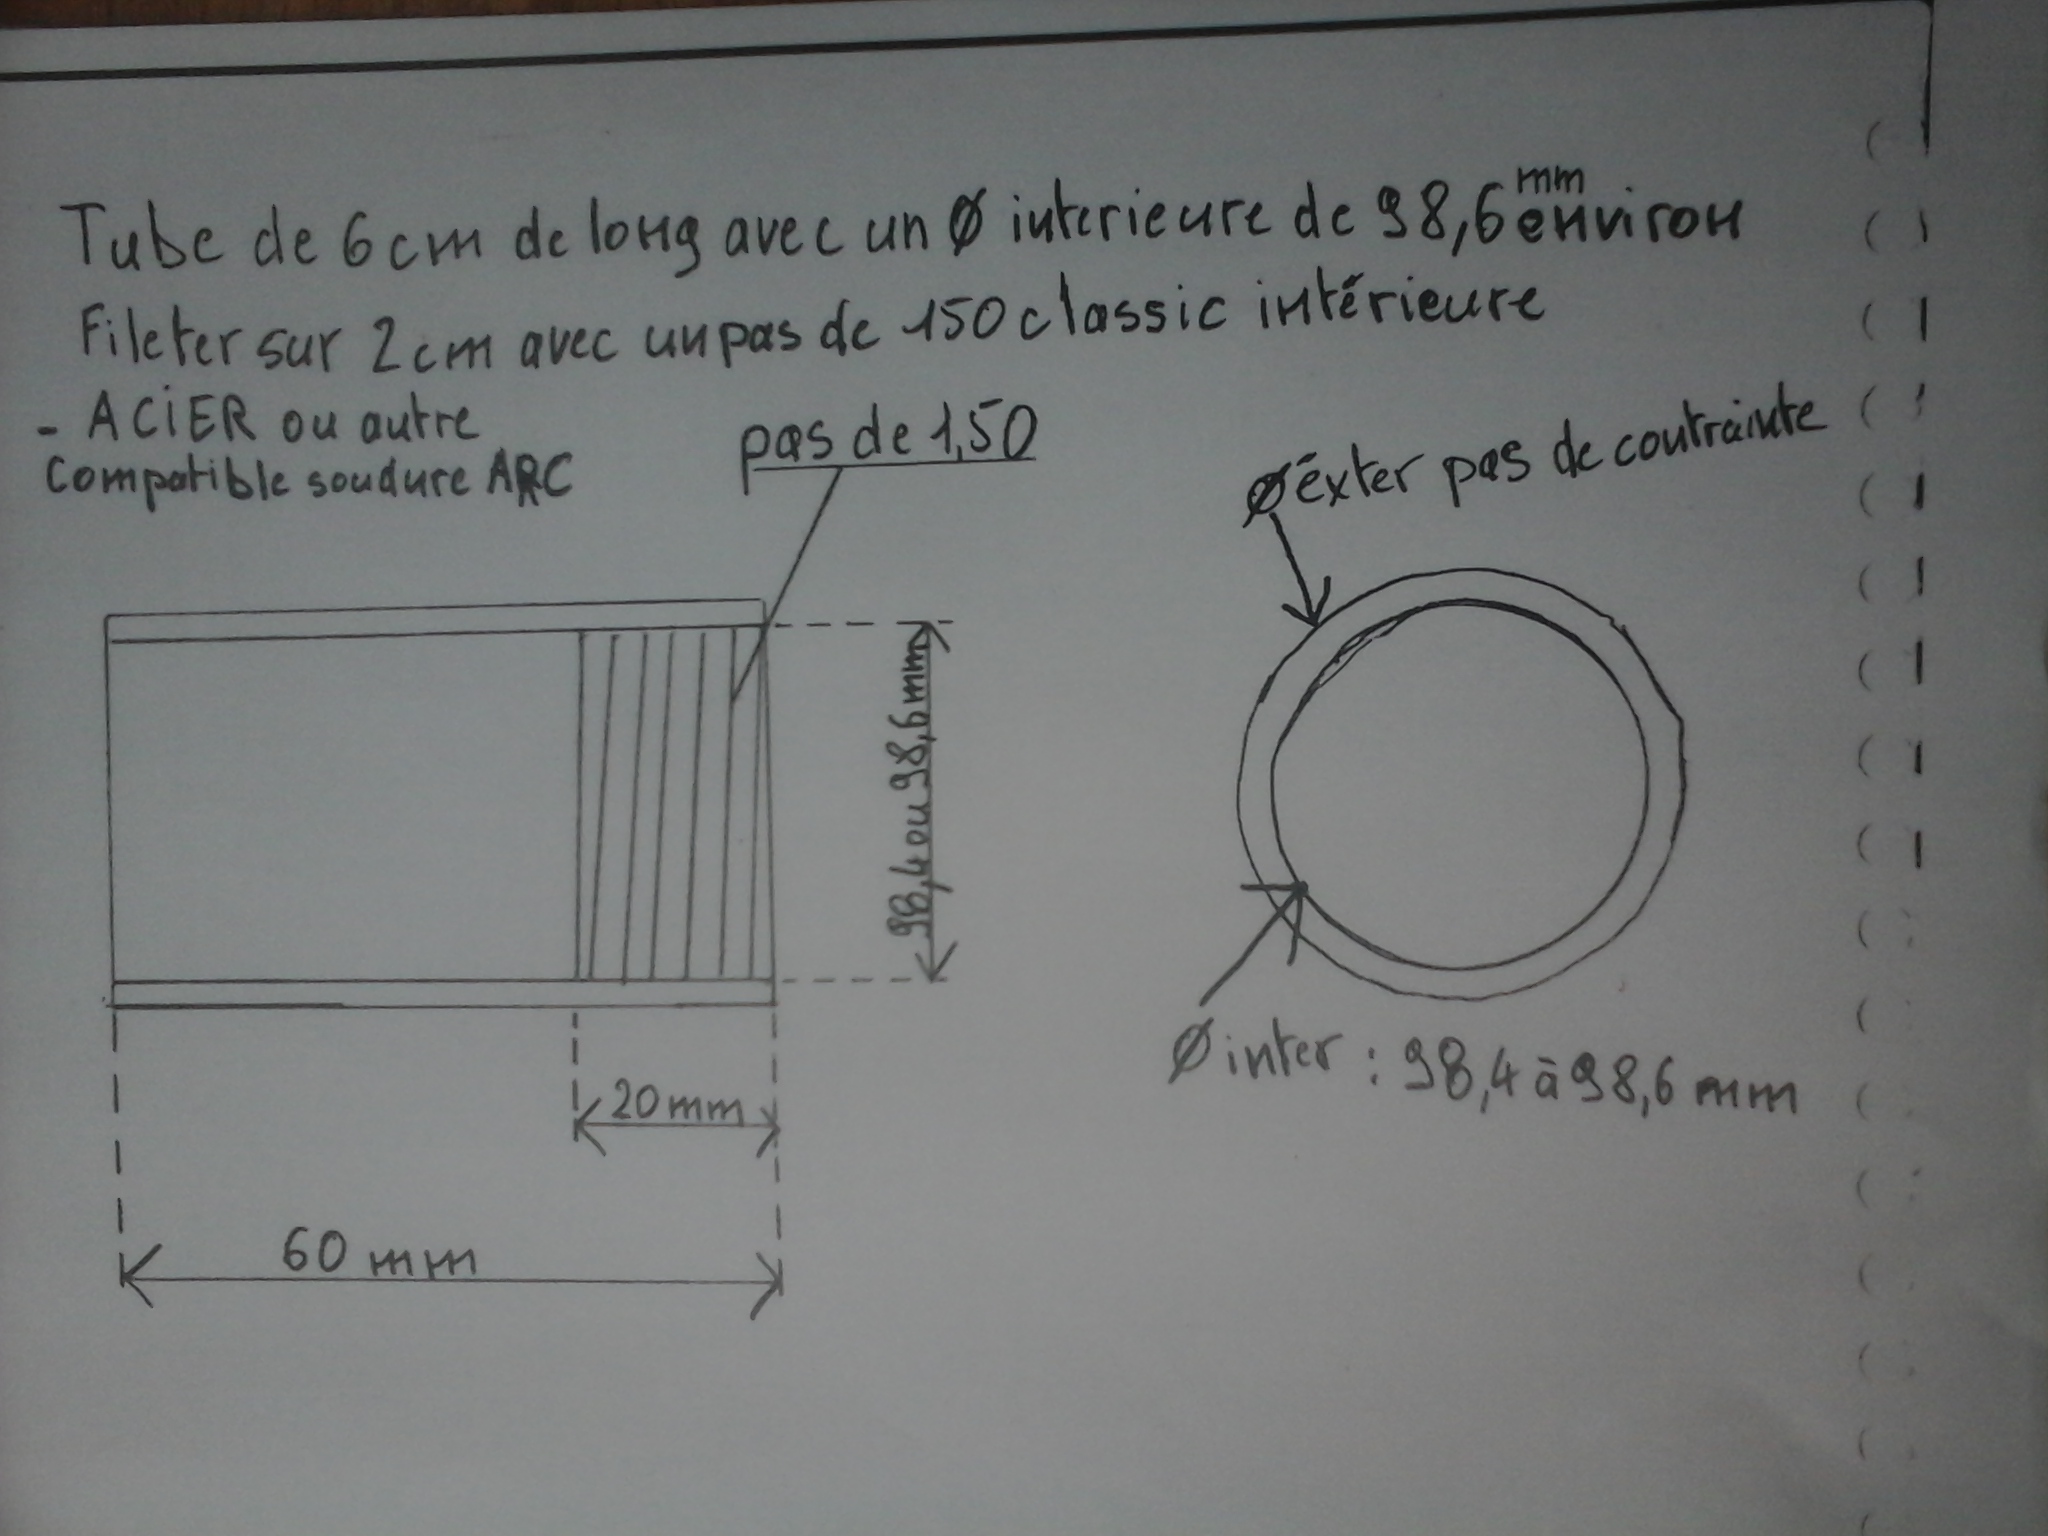 Tube de 6cm de long avec un Ø interieure de 98,6 mm environ
Fileter sur 2cm avec un pas de 150 classic intérieure
- ACiER ou autre
Compatible soudure ARC
pas de 1,50
Ø éxter pas de contrainte
98,4 ou 98,6mm
Ø inter : 98,4 à 98,6 mm
20mm
60 mm